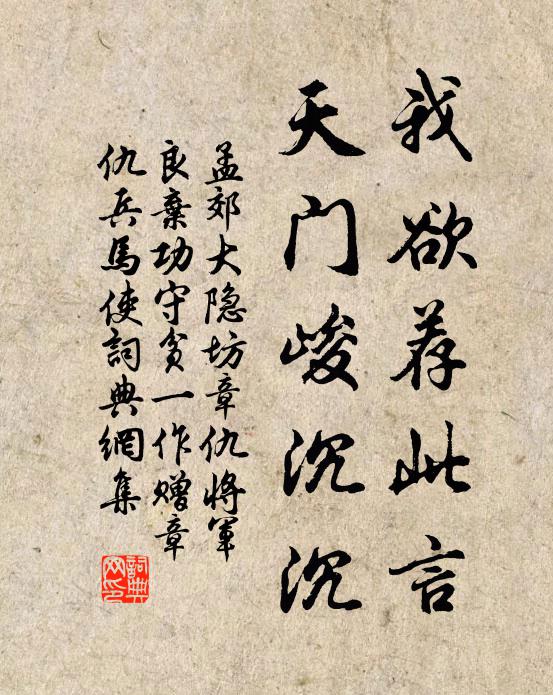 我欲荐此言
天门峻沉沉
孟郊大隐坊章仇将军
良棄功守贫一作赠章
仇兵馬使詞典網集
詞典
网印